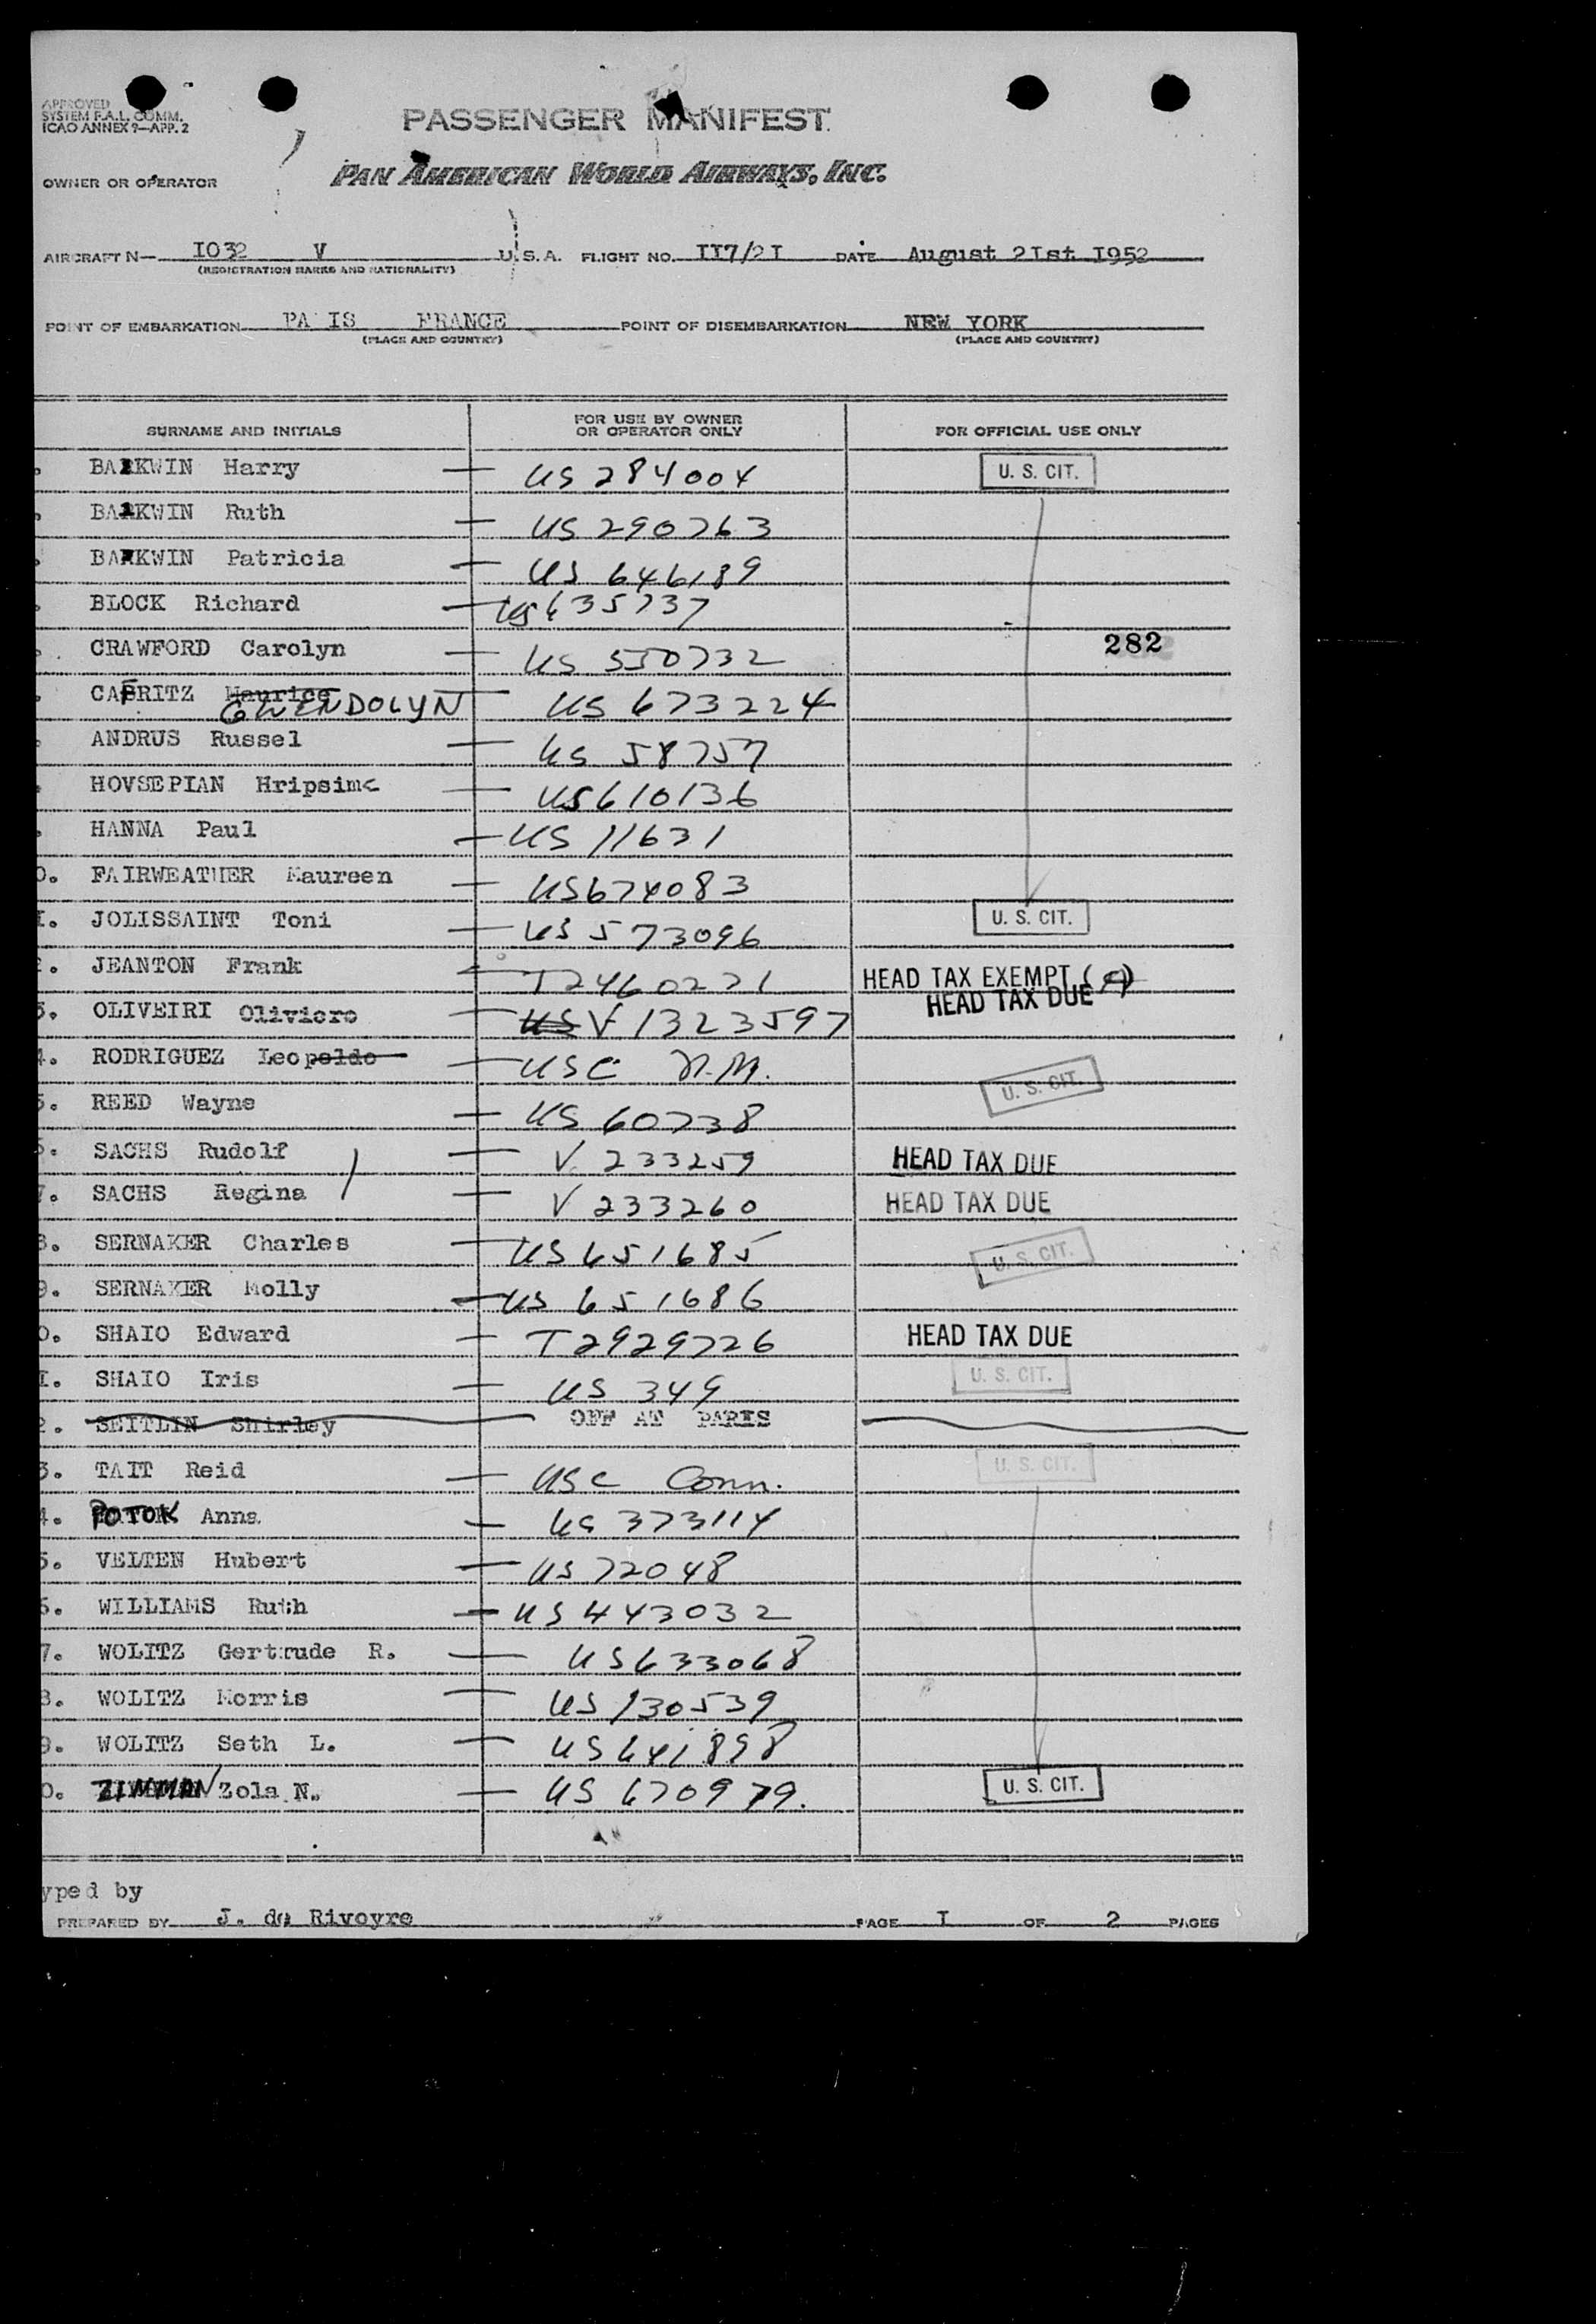 APPROVED
SYSTEM F.A.L. COMM.
ICAO ANNEX 9—APP. 2
PASSENGER MANIFEST
OWNER OR OPERATOR PAN AMERICAN WORLD AIRWAYS, INC.
AIRCRAFT N— I032 V U.S.A. FLIGHT NO. II7/2I DATE August 2Ist I952
(REGISTRATION MARKS AND NATIONALITY)
POINT OF EMBARKATION PA IS FRANCE POINT OF DISEMBARKATION NEW YORK
(PLACE AND COUNTRY) (PLACE AND COUNTRY)
SURNAME AND INITIALS FOR USE BY OWNER OR OPERATOR ONLY FOR OFFICIAL USE ONLY
BAKWIN Harry — US 284004 U. S. CIT.
BAKWIN Ruth — US 290763
BAKWIN Patricia — US 646189
BLOCK Richard — US 635737
CRAWFORD Carolyn — US 550732 282
CAFRITZ Maurice GWENDOLYN — US 673224
ANDRUS Russel — US 58757
HOVSEPIAN Hripsime — US 610136
HANNA Paul — US 11631
0. FAIRWEATHER Maureen — US 674083
I. JOLISSAINT Toni — US 573096 U. S. CIT.
2. JEANTON Frank — T2460221 HEAD TAX EXEMPT (A)
3. OLIVEIRI Oliviero — US V 1323597 HEAD TAX DUE
4. RODRIGUEZ Leopoldo — USC N.M.
5. REED Wayne — US 60738 U. S. CIT.
6. SACHS Rudolf — V 233259 HEAD TAX DUE
7. SACHS Regina — V 233260 HEAD TAX DUE
8. SERNAKER Charles — US 651685 U. S. CIT.
9. SERNAKER Molly — US 651686
0. SHAIO Edward — T2929726 HEAD TAX DUE
I. SHAIO Iris — US 349 U. S. CIT.
2. SEITLIN Shirley OFF AT PARIS
3. TAIT Reid — USC Conn. U. S. CIT.
4. POTOK Anna — US 373114
5. VELTEN Hubert — US 72048
6. WILLIAMS Ruth — US 443032
7. WOLITZ Gertrude R. — US 633068
8. WOLITZ Morris — US 130539
9. WOLITZ Seth L. — US 641898
0. ZIMMAN Zola N. — US 670979. U. S. CIT.
yped by
PREPARED BY J. de Rivoyre PAGE I OF 2 PAGES